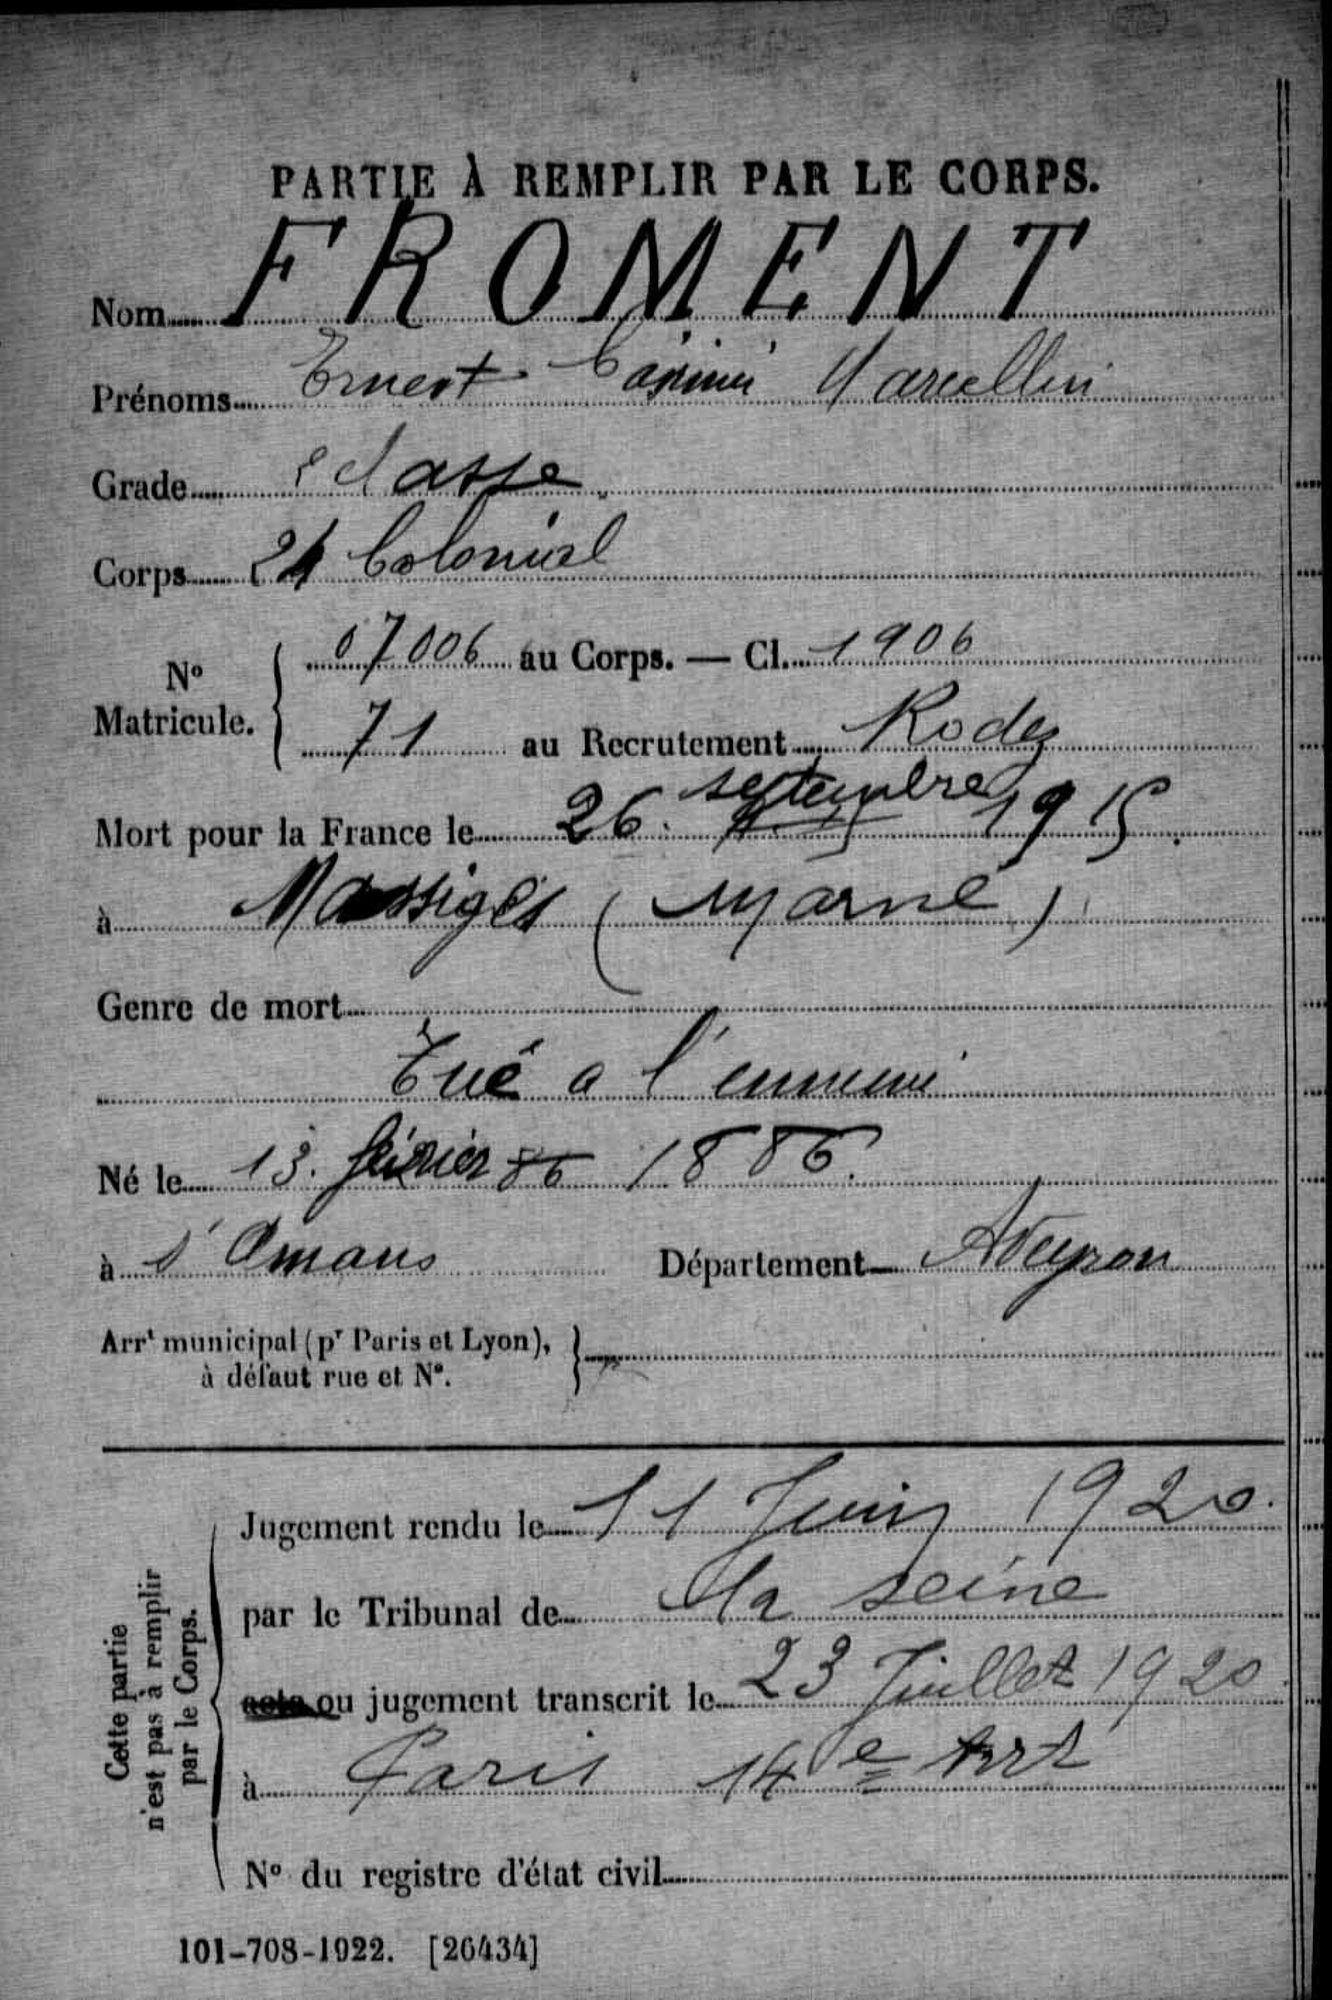 PARTIE À REMPLIR PAR LE CORPS.
Nom FROMENT
Prénoms Ernest Casimir Marcellin
Grade 2 classe
Corps 24 Colonial
N° Matricule. 07006 au Corps. — Cl. 1906
71 au Recrutement Rodez
septembre
Mort pour la France le 26. 1915.
à Massiges (Marne)
Genre de mort
Tué a l'ennemi
Né le 13. février 86 1886.
à St Amans Département Aveyron
Arrt municipal (pr Paris et Lyon),
à défaut rue et N°.
Cette partie
n'est pas à remplir
par le Corps.
Jugement rendu le 11 Juin 1920.
par le Tribunal de la seine
acte ou jugement transcrit le 23 Juillet 1920
à Paris 14e Arrt
N° du registre d'état civil
101-708-1922. [26434]